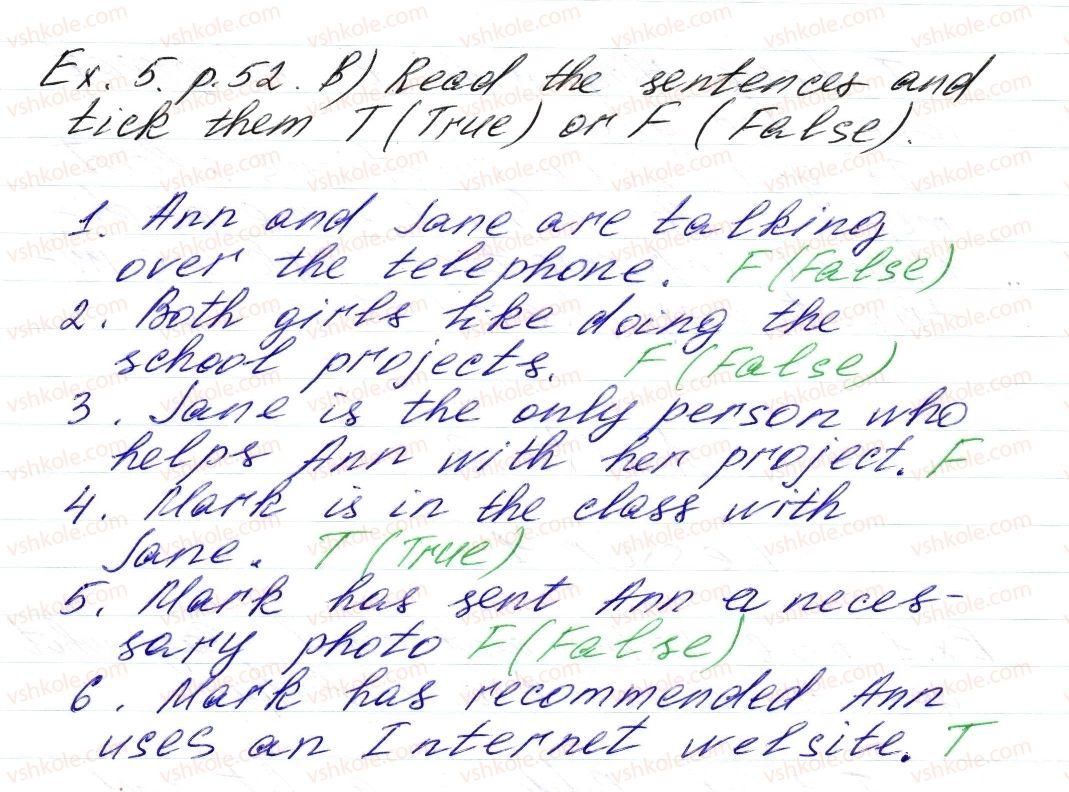 Ex. 5. p. 52. B) Read the sentences and
tick them T (True) or F (False).
1. Ann and Jane are talking
over the telephone. F (False)
2. Both girls like doing the
school projects. F (False)
3. Jane is the only person who
helps Ann with her project. F
4. Mark is in the class with
Jane. T (True)
5. Mark has sent Ann a neces-
sary photo F (False)
6. Mark has recommended Ann
uses an Internet website. T